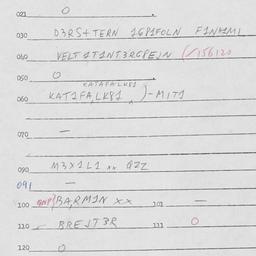 021 O
030 D3RS+TERN 1G81FOLN F1NH1MI
040 VELT 1T1NT3RCPE,N (✓156120
050 O
KATAFALK81
060 KAT1FA,LK81 )-MIT1
070 —
090 M3X1L1 xx QZZ
091 —
100 GNP(BA,RM1N xx 101 —
110 BREJT3R 111 O
120 O